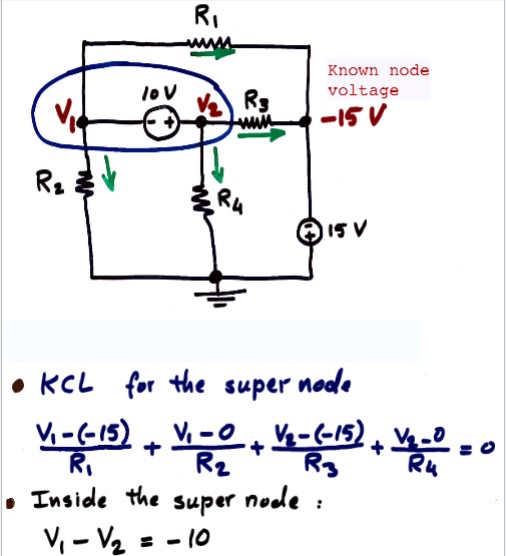 R₁
Known node
voltage
10V
V₁
- +
V₂
R₃
-15 V
R₂
R₄
- +
15 V
• KCL for the super node
V₁-(-15)/R₁ + V₁-0/R₂ + V₂-(-15)/R₃ + V₂-0/R₄ = 0
• Inside the super node :
V₁ - V₂ = -10